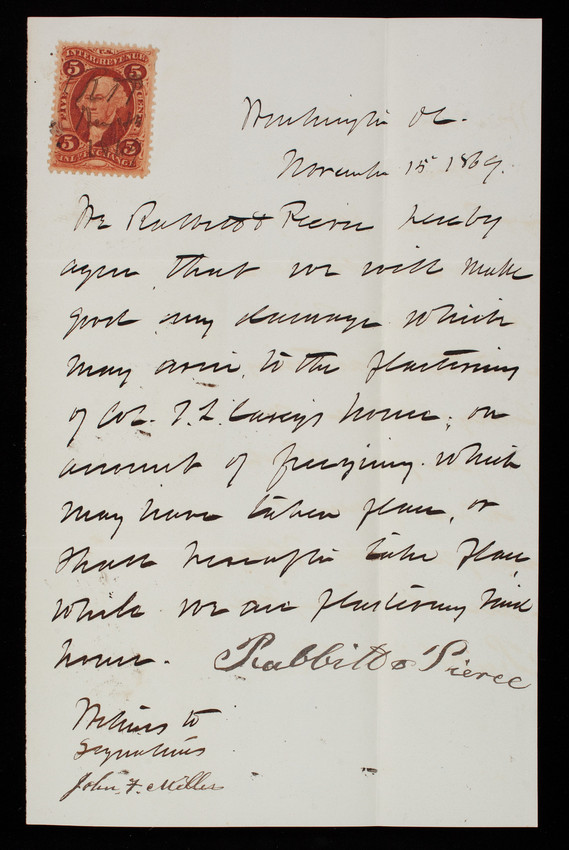 5 U.S. 5
INTER. REVENUE
FIVE CENTS
5 5
INL. EXCHANGE
Washington DC.
November 15 1869.
We Rabbitt & Pierce hereby
agree that we will make
good any damage which
may arise, to the plastering
of Col. T. L. Casey's house, on
account of freezing which
may have taken place, or
shall hereafter take place,
while we are plastering said
house. Rabbitt & Pierce
Witness to
Signatures
John F. Miller